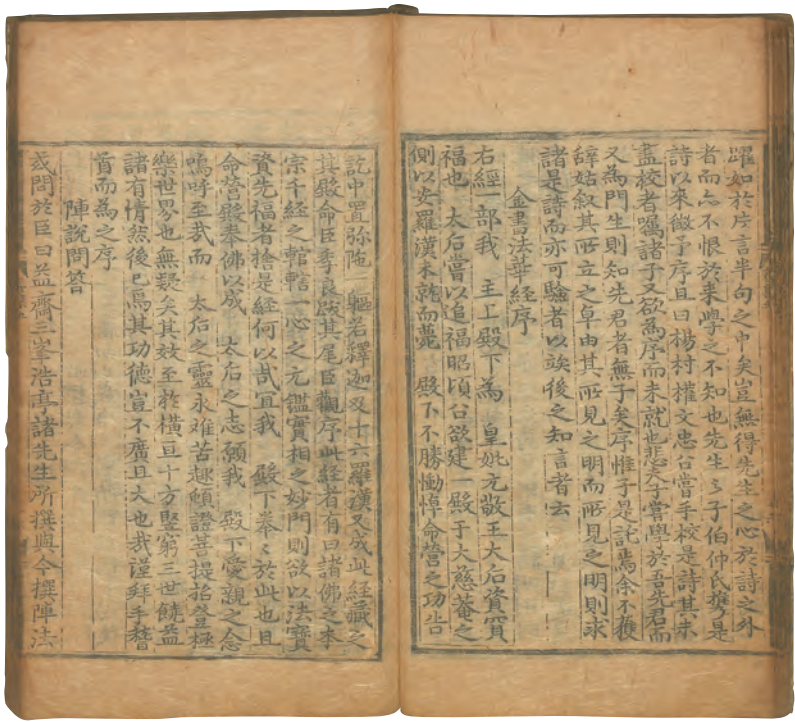 躍如於片言半句之中矣豈無得先生之心於詩之外
者而亦不恨於来學之不知也先生之子伯仲氏携是
詩以來徵予序且曰楊村權文忠公嘗手校是詩其未
盡校者囑諸子又欲為序而未就也悲夫子嘗學於吾先君而
又為門生則知先君者無子矣序惟子是託焉余不獲
辭姑叙其所立之卓由其所見之明而所見之明則求
諸是詩而亦可驗者以竢後之知言者云
金書法華經序
右經一部我 主上殿下為 皇妣元敬王大后資冥
福也 太后嘗以追福昭頃公欲建一殿于大慈菴之
側以安羅漢未就而薨 殿下不勝慟悼命營之功告
訖中置弥陁 軀若釋迦及十六羅漢又成此經藏之
其殿命臣季良跋其尾臣觀序此經者有曰諸佛之本
宗千經之輨轄一心之元鑑實相之妙門則欲以法寶
資先福者捨是經何以㢤冝我 殿下拳〻於此也且
命營殿奉佛以成 太后之志願我 殿下愛親之念
嗚呼至㢤而 太后之靈永难苦趣頓證菩提指登極
樂世界也無疑矣其效至於橫亘十方竪窮三世饒益
諸有情然後已焉其功德豈不廣且大也㢤謹拜手稽
首而為之序
陣說問答
或問於臣曰益齋三峯浩亭諸先生所撰與今撰陣法